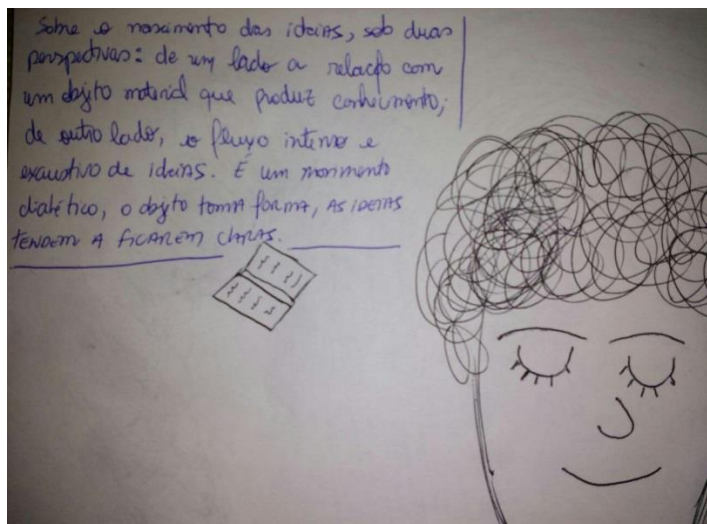 Sobre o nascimento das ideias, sob duas
perspectivas: de um lado a relação com
um objeto material que produz conhecimento;
de outro lado, o fluxo intenso e
exaustivo de ideias. É um movimento
dialético, o objeto toma forma, AS IDEIAS
TENDEM A FICAREM CLARAS.